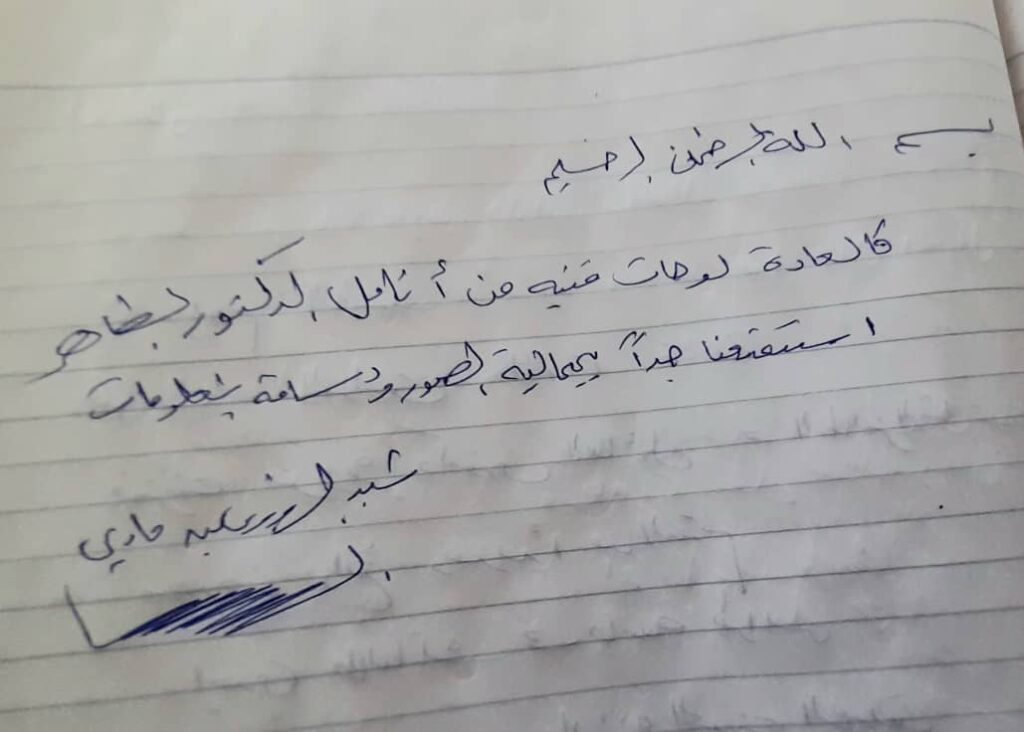 بسم الله الرحمن الرحيم
كالعادة لوحات فنيه من أنامل الدكتور الطاهر
استمتعنا جداً بجمالية الصور ودسامة المعلومات